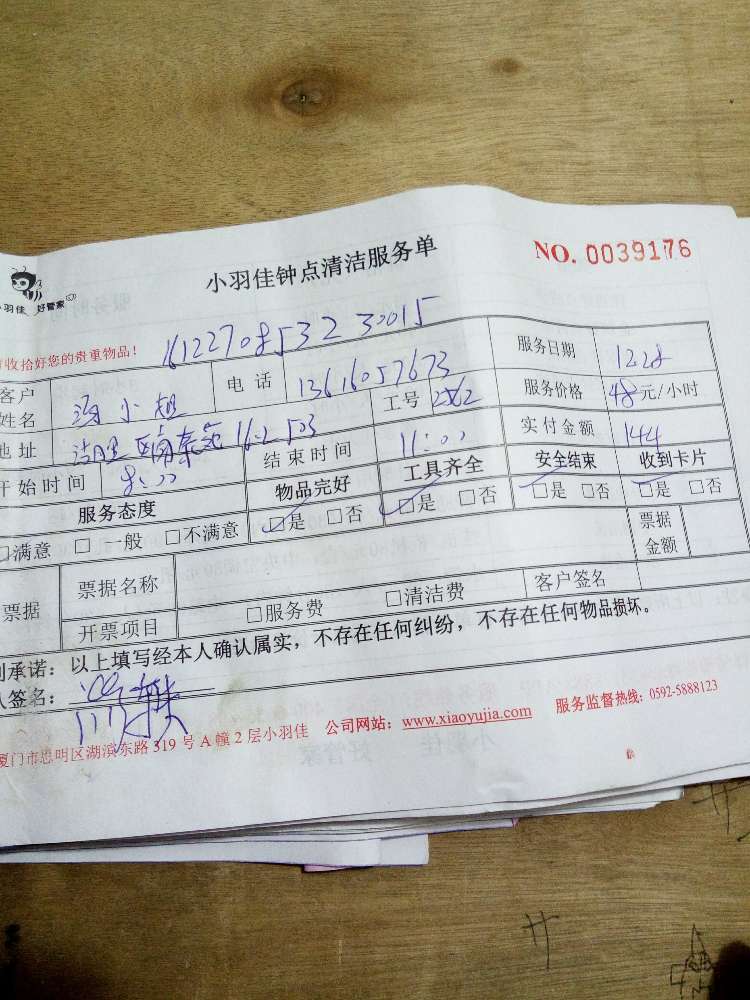 小羽佳钟点清洁服务单 NO. 0039176
小羽佳 好管家
收拾好您的贵重物品! 16122708532 30015
客户姓名 汤小姐 电话 13616057673 服务日期 12.28
地址 16-2 503 工号 服务价格 48元/小时
开始时间 8:00 结束时间 11:00 实付金额 144
服务态度 物品完好 工具齐全 安全结束 收到卡片
□满意 □一般 □不满意 ☑是 □否 ☑是 □否 ☑是 □否 ☑是 □否
票据 票据名称 票据金额
开票项目 □服务费 □清洁费 客户签名
承诺：以上填写经本人确认属实，不存在任何纠纷，不存在任何物品损坏。
人签名：
厦门市思明区湖滨东路319号A幢2层小羽佳 公司网站：www.xiaoyujia.com 服务监督热线：0592-5888123